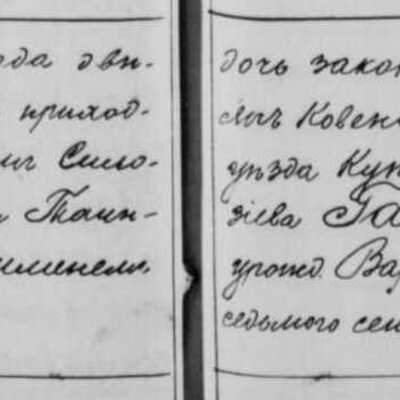 ода дви-
приход-
Сило-
Таин-
именемъ
дочь закон
сынъ Ковен
уѣзда Куп
зіева Та
урожд. Вар
седьмого сен